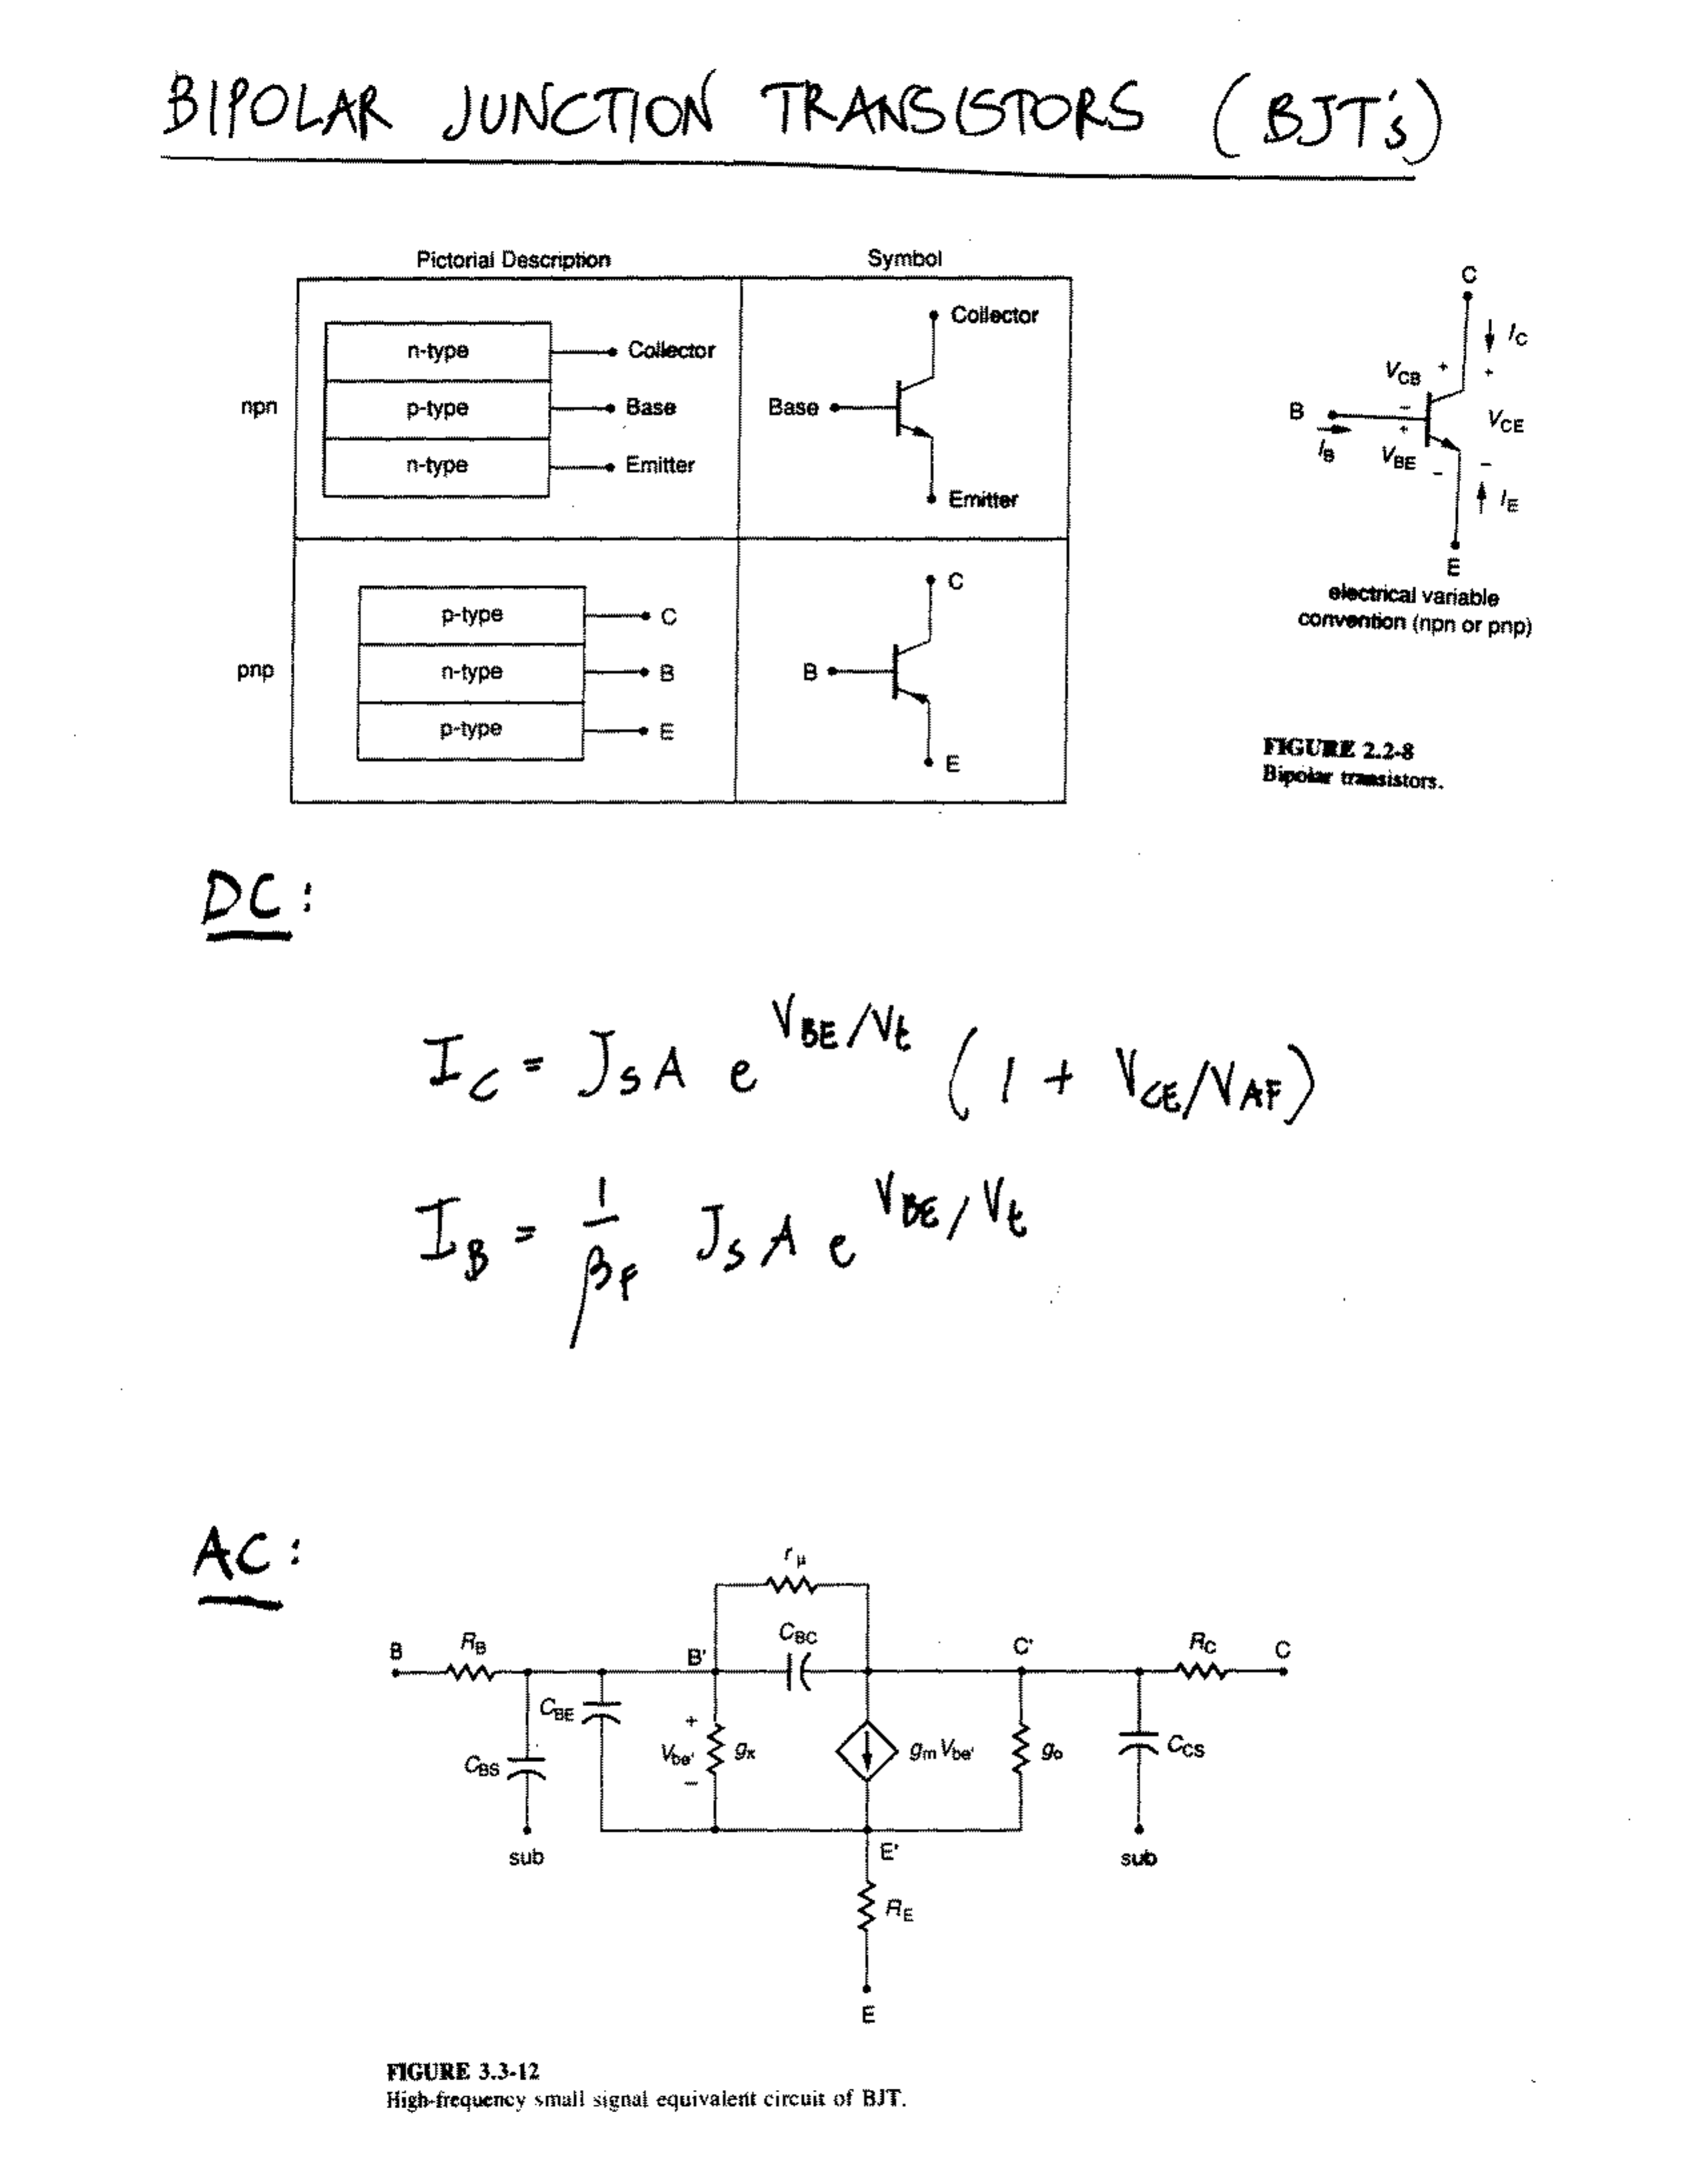 BIPOLAR JUNCTION TRANSISTORS (BJT's)
Pictorial Description
Symbol
npn
n-type
Collector
p-type
Base
n-type
Emitter
Collector
Base
Emitter
pnp
p-type
C
n-type
B
p-type
E
C
B
E
C
I_C
V_CB
+
+
B
−
+
V_CE
I_B
V_BE
−
−
I_E
E
electrical variable
convention (npn or pnp)
FIGURE 2.2-8
Bipolar transistors.
DC:
I_C = J_S A e^{V_BE/V_t} (1 + V_CE/V_AF)
I_B = 1/β_F J_S A e^{V_BE/V_t}
AC:
r_μ
B
R_B
B'
C_BC
C'
R_C
C
C_BE
+
C_BS
V_be'
g_π
−
g_m V_be'
g_o
C_CS
sub
E'
sub
R_E
E
FIGURE 3.3-12
High-frequency small signal equivalent circuit of BJT.